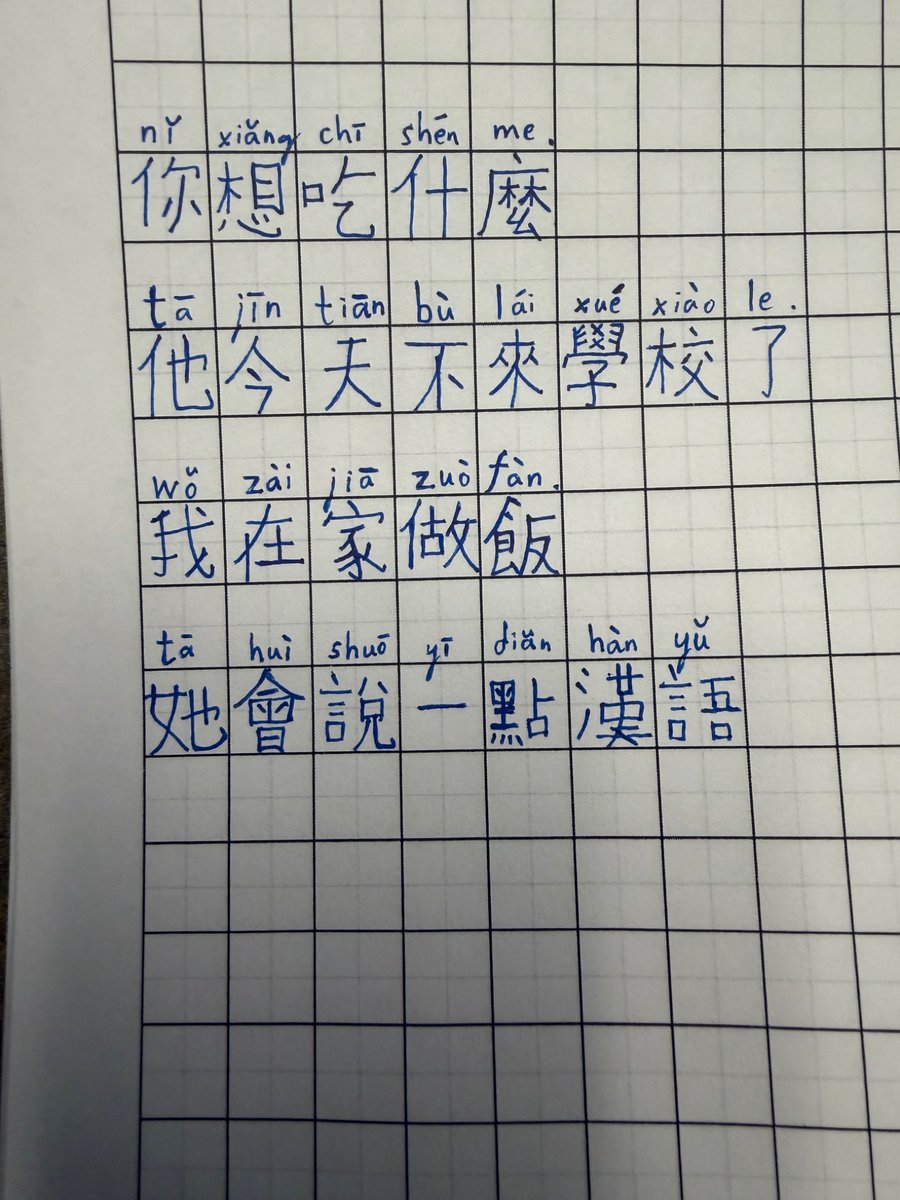 nǐ xiǎng chī shén me.
你想吃什麼
tā jīn tiān bù lái xué xiào le.
他今天不來學校了
wǒ zài jiā zuò fàn.
我在家做飯
tā huì shuō yī diǎn hàn yǔ
她會說一點漢語